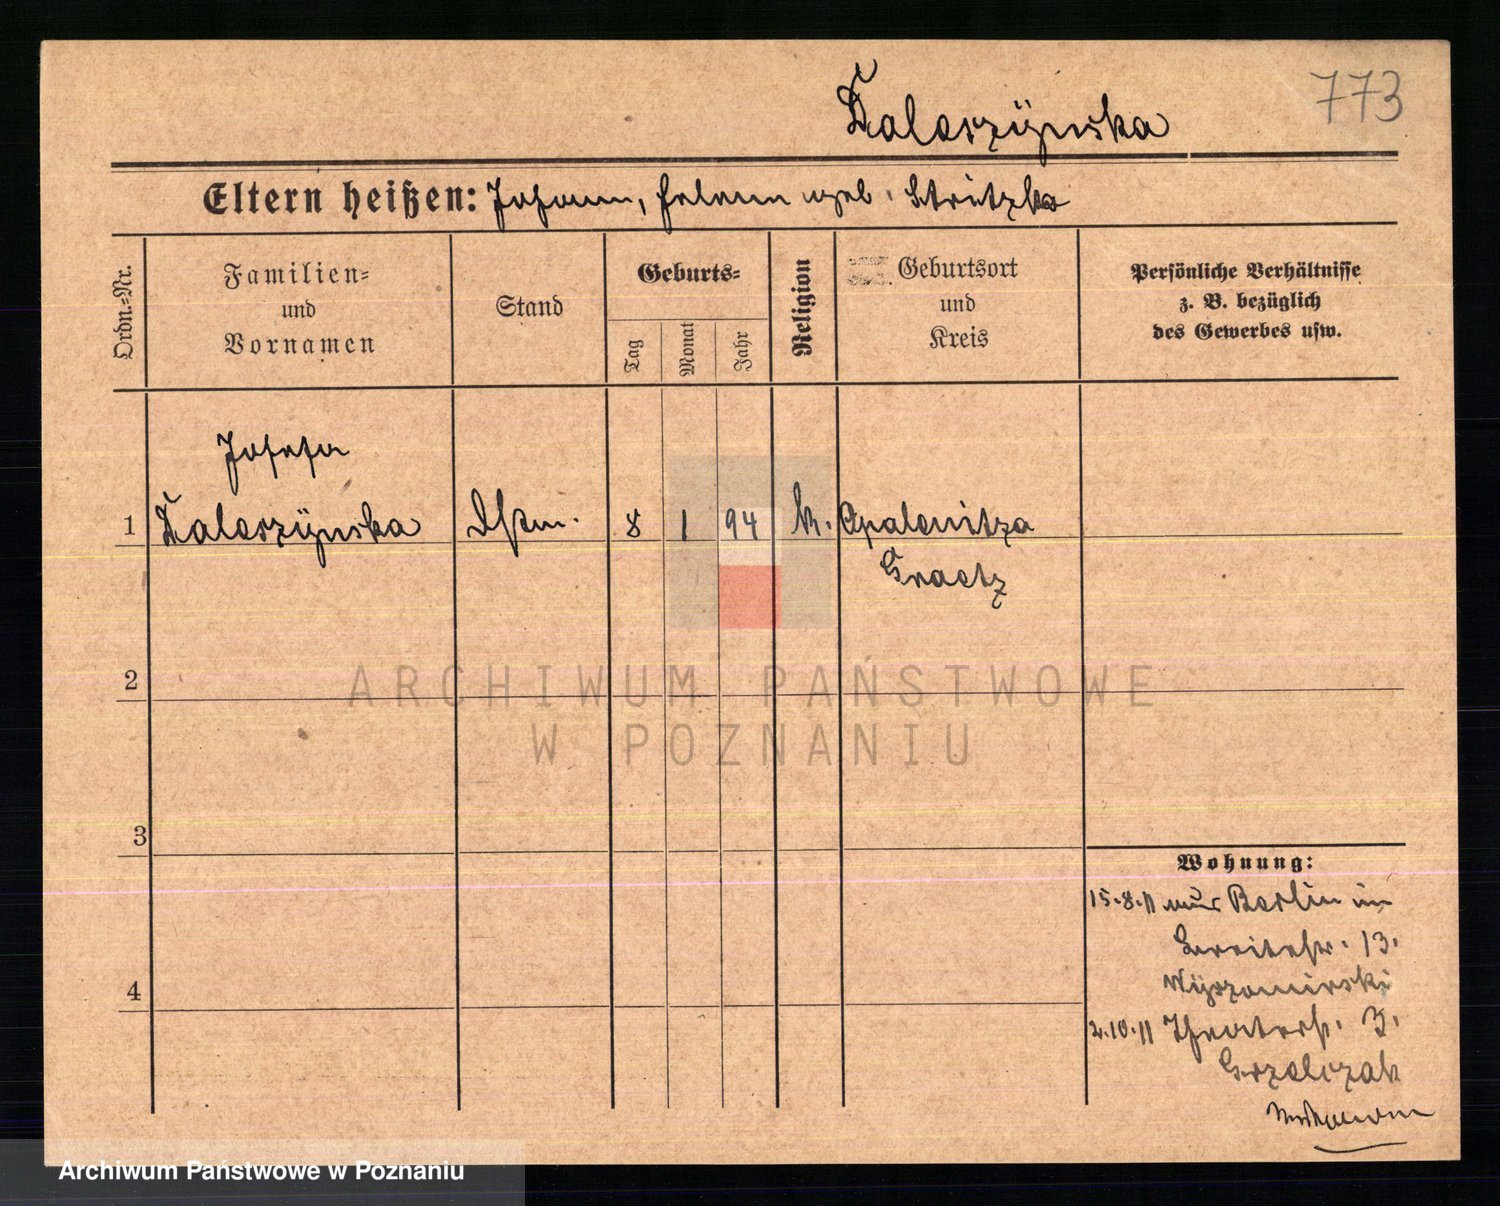 Kaleszynska
773
Eltern heißen: Johann, Helena geb. Stritzka
Ordn.=Nr.
Familien=
und
Vornamen
Stand
Geburts=
Tag
Monat
Jahr
Religion
Geburtsort
und
Kreis
Persönliche Verhältnisse
z. B. bezüglich
des Gewerbes usw.
Josefa
1 Kaleszynska Dstm. 8 1 94 k. Opalenitza
Graetz
2
3
4
Wohnung:
15.8.11 aus Berlin in
Breitestr. 13.
Wyszomirski
2.10.11 Theaterstr. 3.
Grzelczak
ARCHIWUM PAŃSTWOWE
W POZNANIU
Archiwum Państwowe w Poznaniu